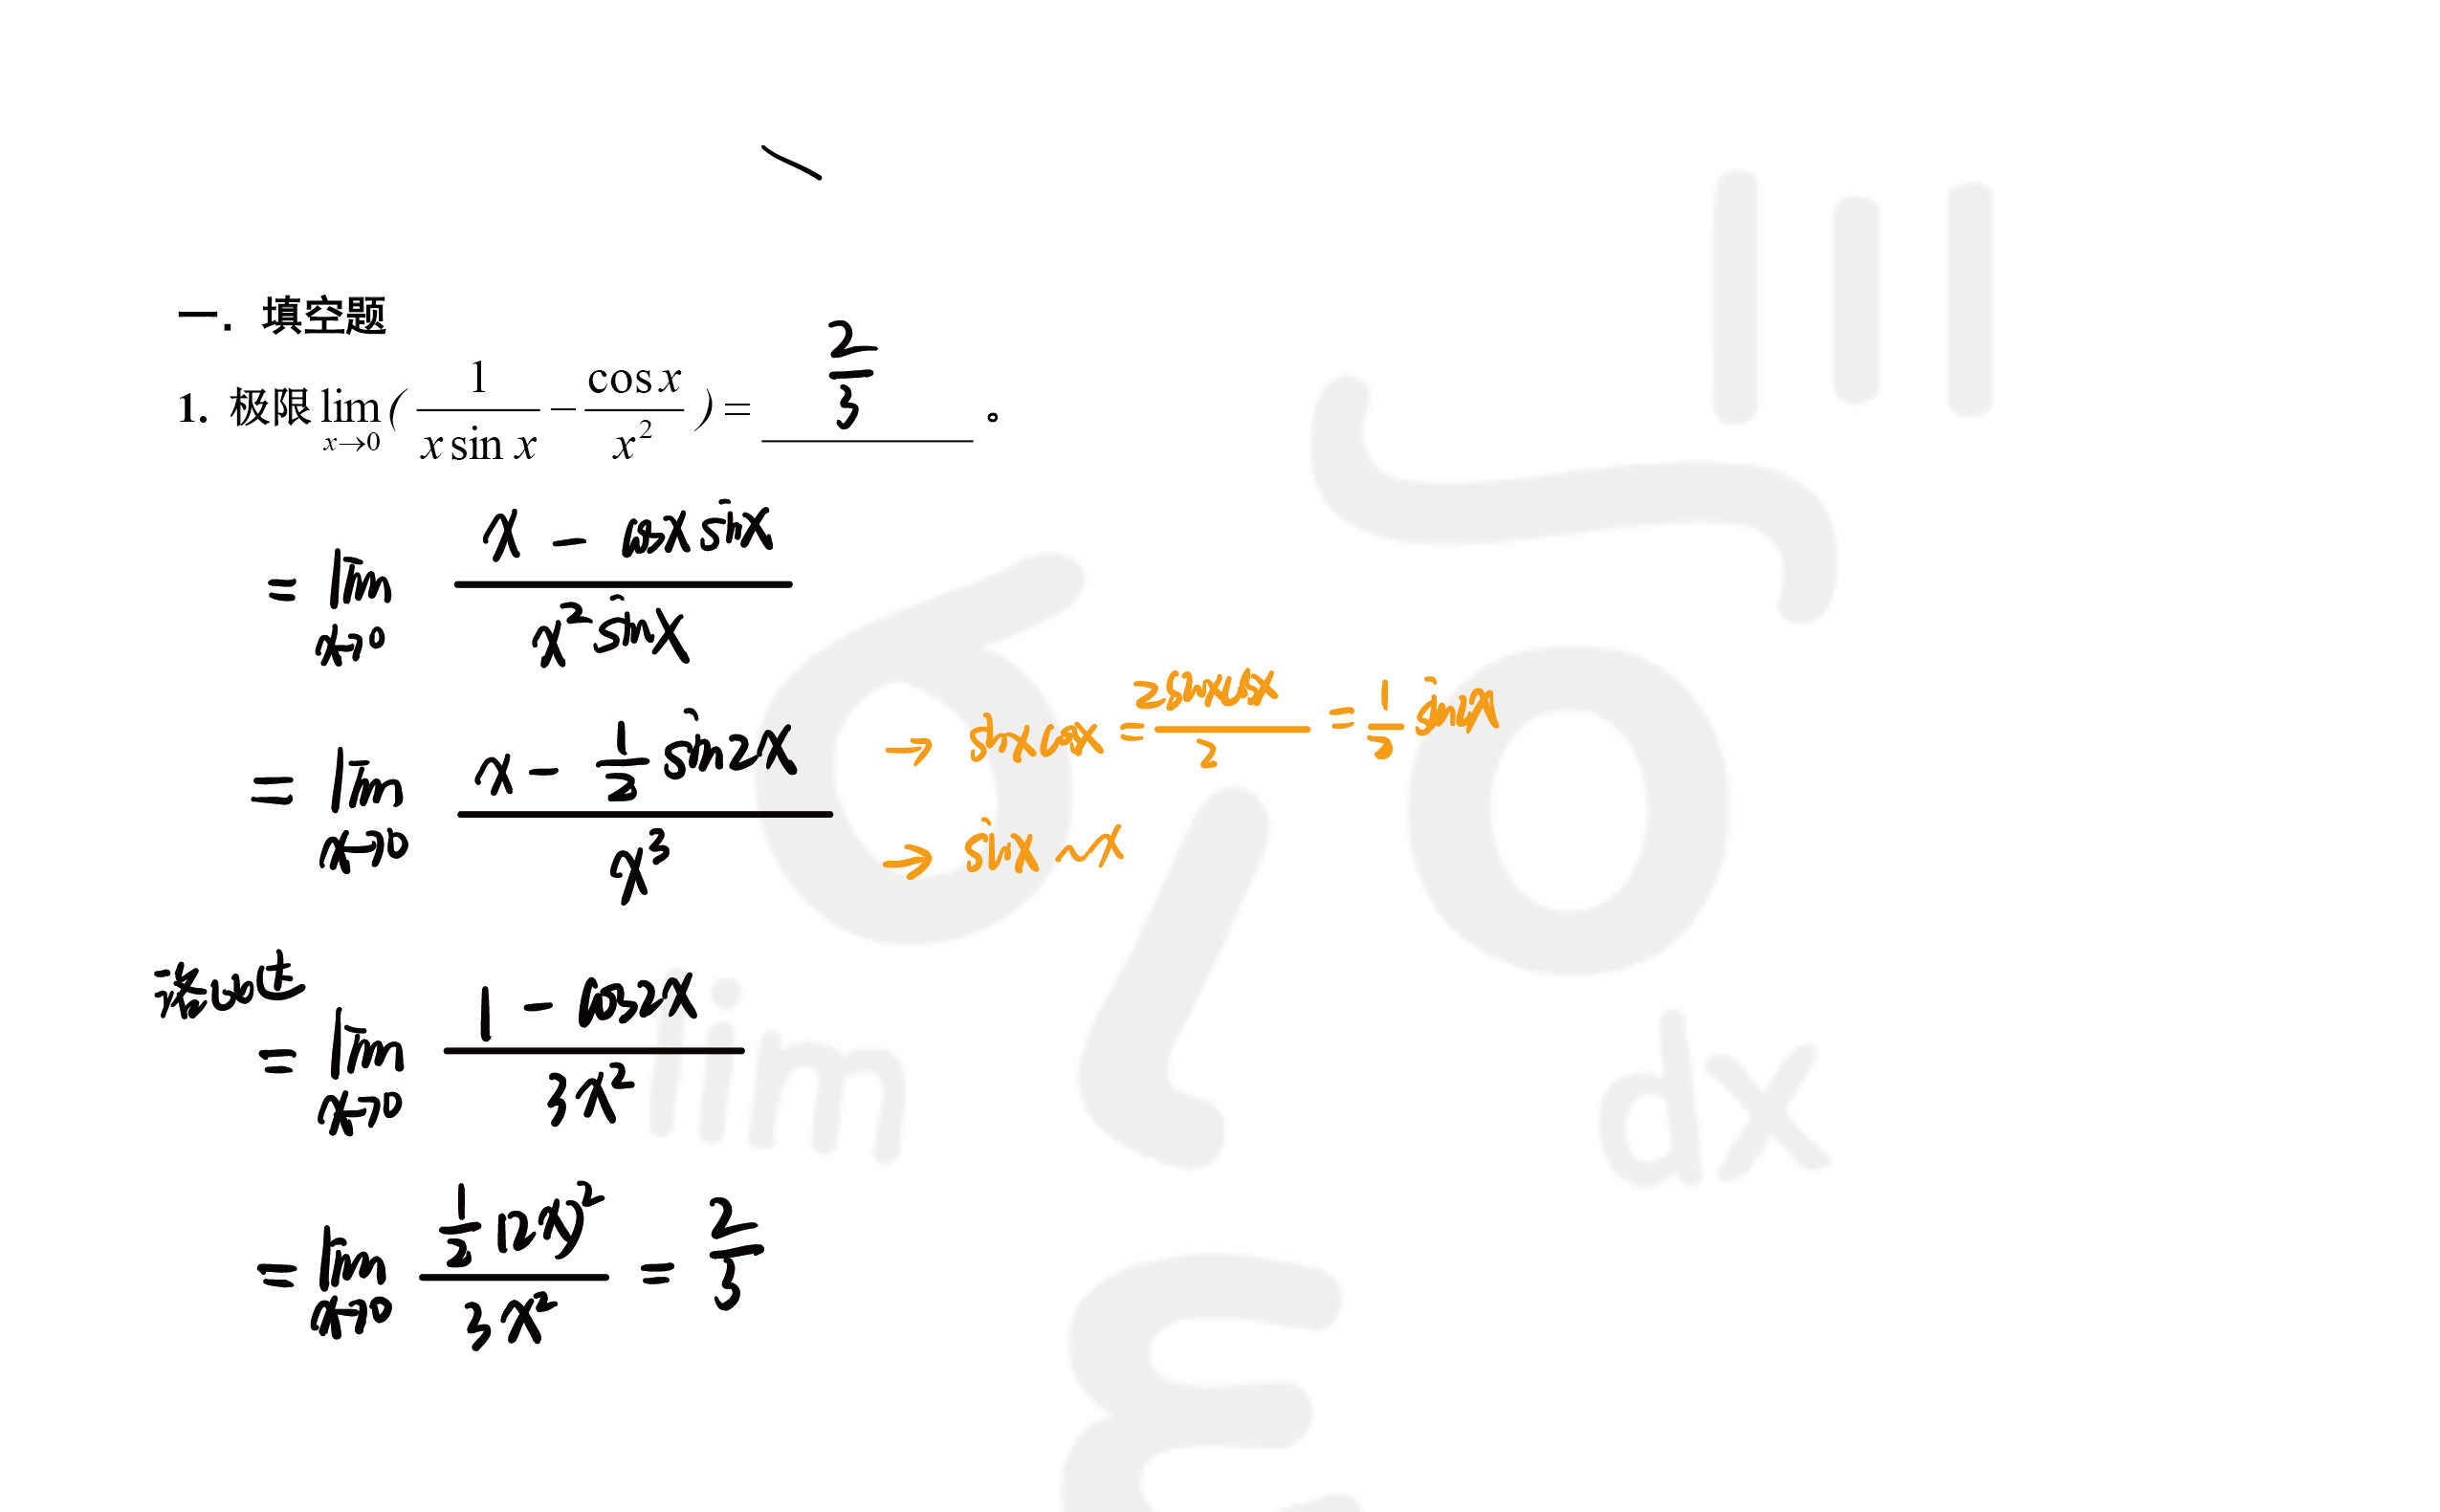 一. 填空题
1. 极限 lim_{x→0} ( 1/(x sin x) − cos x/x² ) = 2/3 。
= lim_{x→0} (x − cosx sinx)/(x² sinx)
= lim_{x→0} (x − 1/2 sin2x)/x³ → sinxcosx = 2sinxcosx/2 = 1/2 sin2x
→ sinx ~ x
洛必达
= lim_{x→0} (1 − cos2x)/(3x²)
= lim_{x→0} (1/2 (2x)²)/(3x²) = 2/3
lim
dx